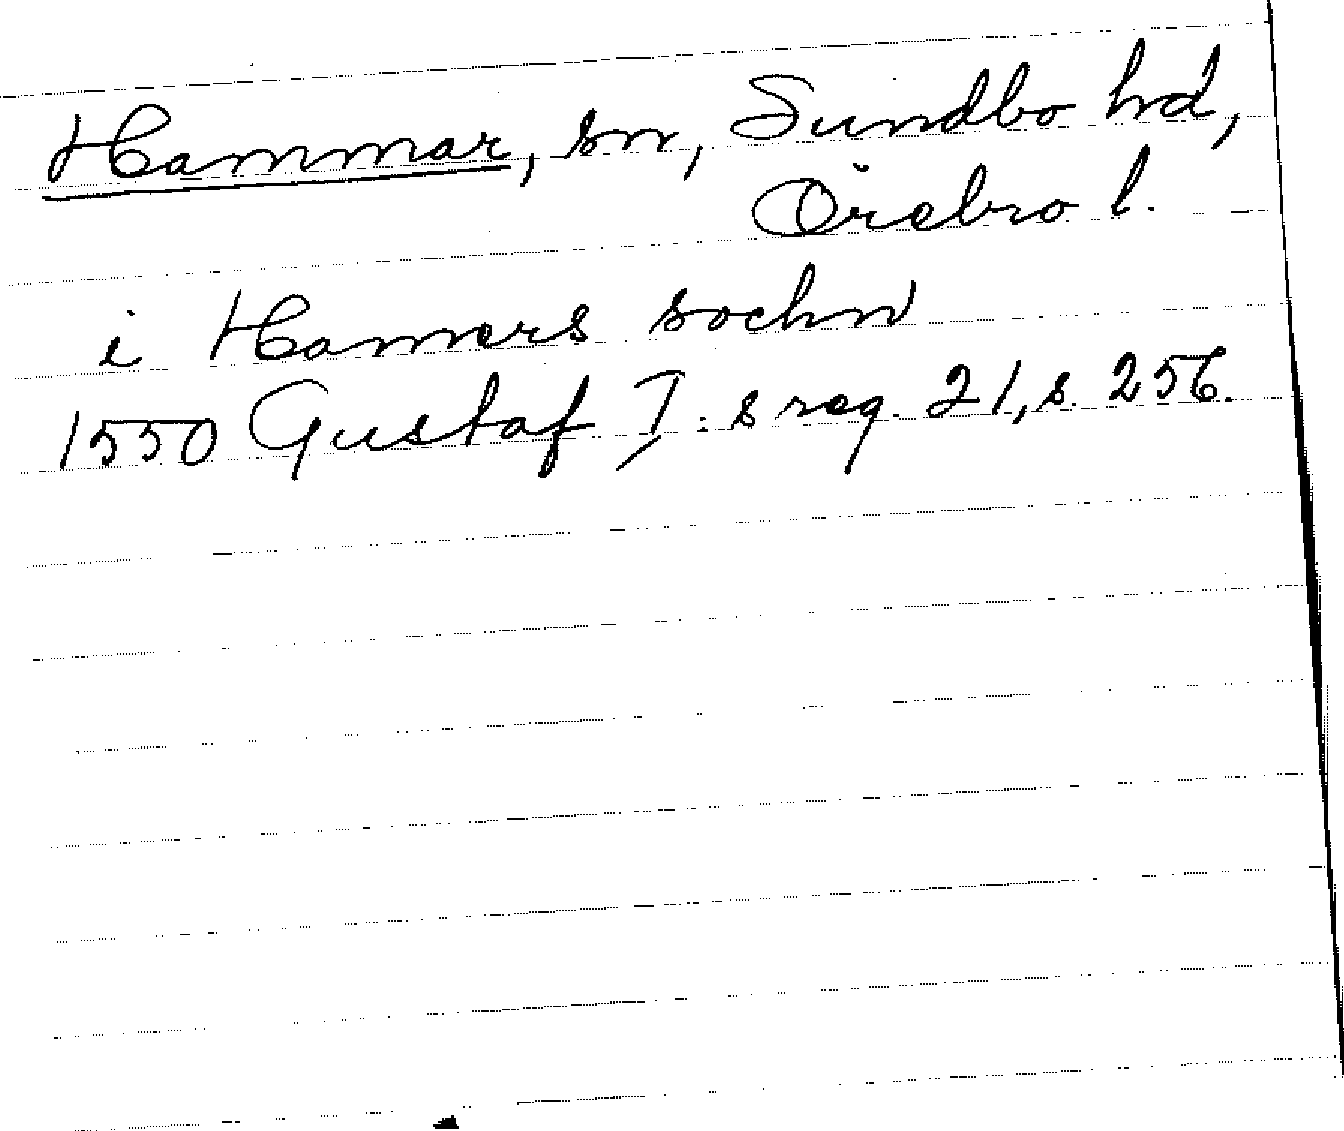 Hammar, sn, Sundbo hd,
Örebro l.
i Hamers sochn
1550 Gustaf I:s reg. 21, s. 256.